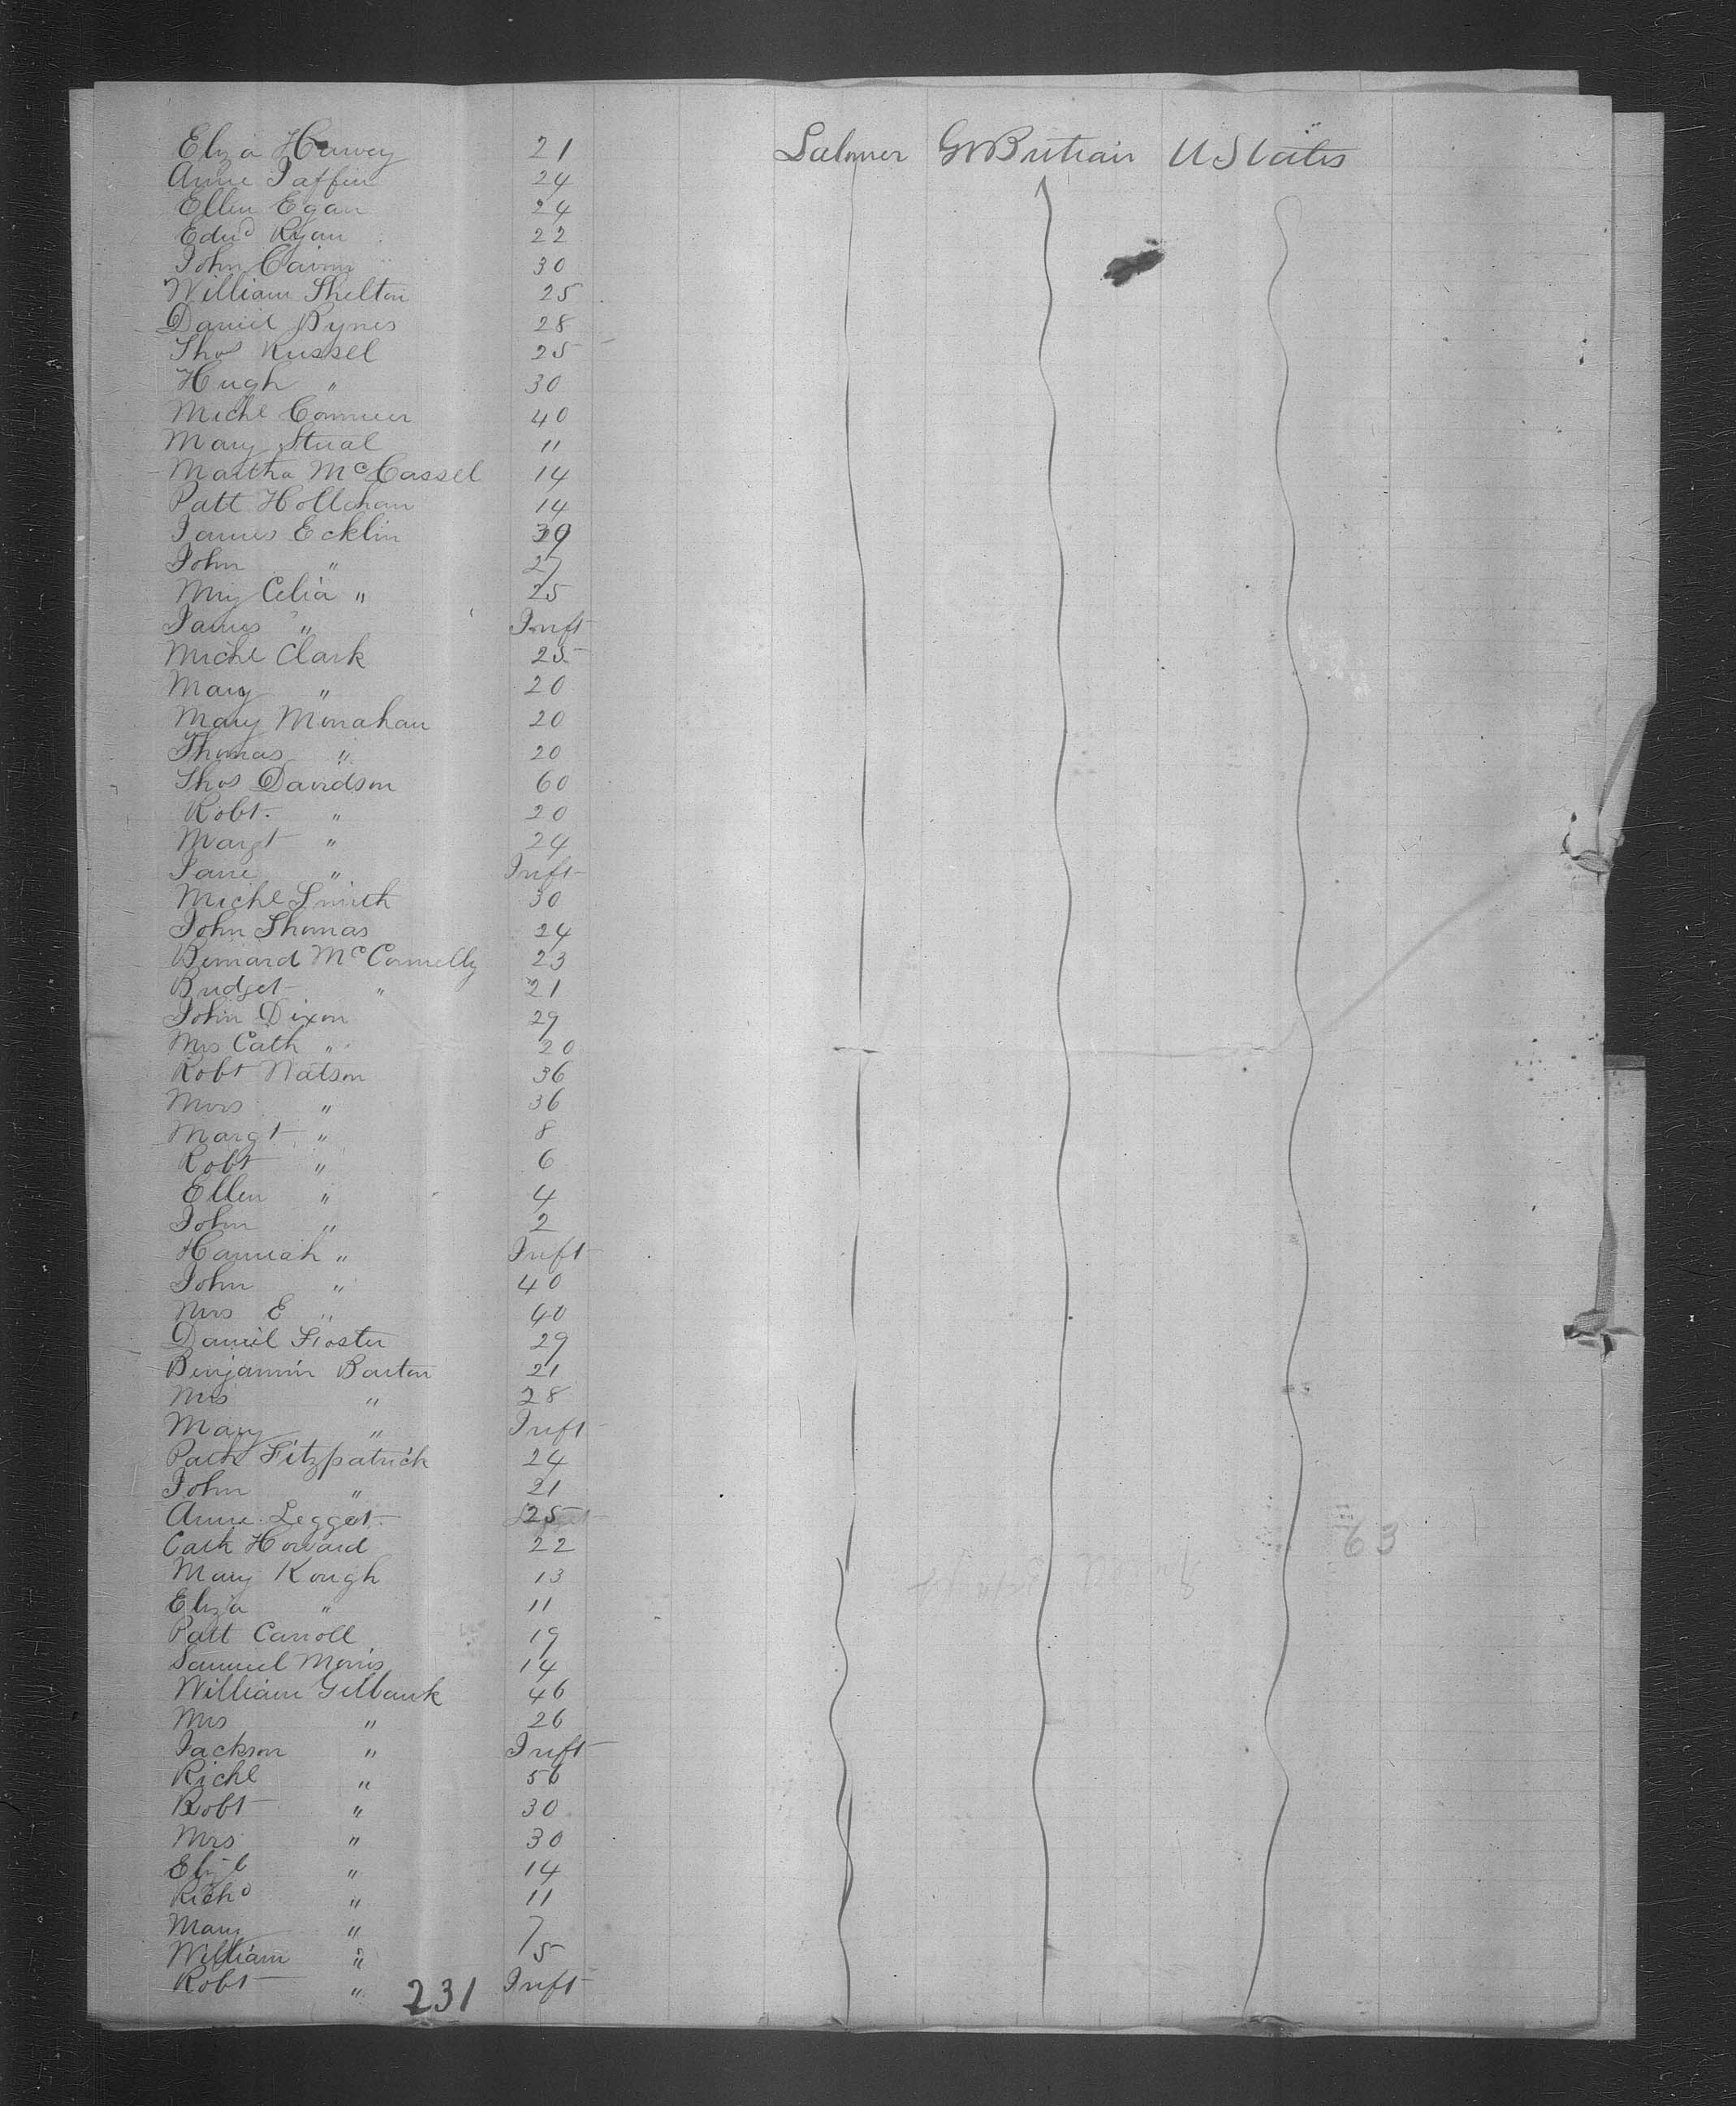 Eliza Harvey 21 Labourer Gt Britain U States
Anne Taffin 24
Ellen Egan 24
Edwd Ryan 22
John Cairnn 30
William Shelton 25
Daniel Bynes 28
Thos Russel 25
Hugh " 30
Michl 40
Mary Steal 11
Martha McCassel 14
Patt Hollahan 14
James Ecklin 39
John " 27
Celia " 25
James " Inft
Michl Clark 25
Mary " 20
Mary Monahan 20
Thomas " 20
Thos Davidson 60
Robt. " 20
Margt " 24
Jane " Inft
Michl Smith 30
John Thomas 24
Bernard McConnelly 23
Bridget " 21
John Dixon 29
Mrs Cath " 20
Robt Watson 36
Mrs " 36
Margt " 8
Robt " 6
Ellen " 4
John " 2
Hannah " Inft
John " 40
Mrs E " 40
Daniel Foster 29
Benjamin Barton 21
Mrs " 28
Mary " Inft
Patk Fitzpatrick 24
John " 21
Anne Leggat 25
Cath Howard 22
Mary Kough 13
Eliza " 11
Patt Carroll 19
Samuel Morris 14
William Gilbank 46
Mrs " 26
Jackson " Inft
Richd " 56
Robt " 30
Mrs " 30
Elizb " 14
Richd " 11
Mary " 7
William " 5
Robt " Inft
231
63